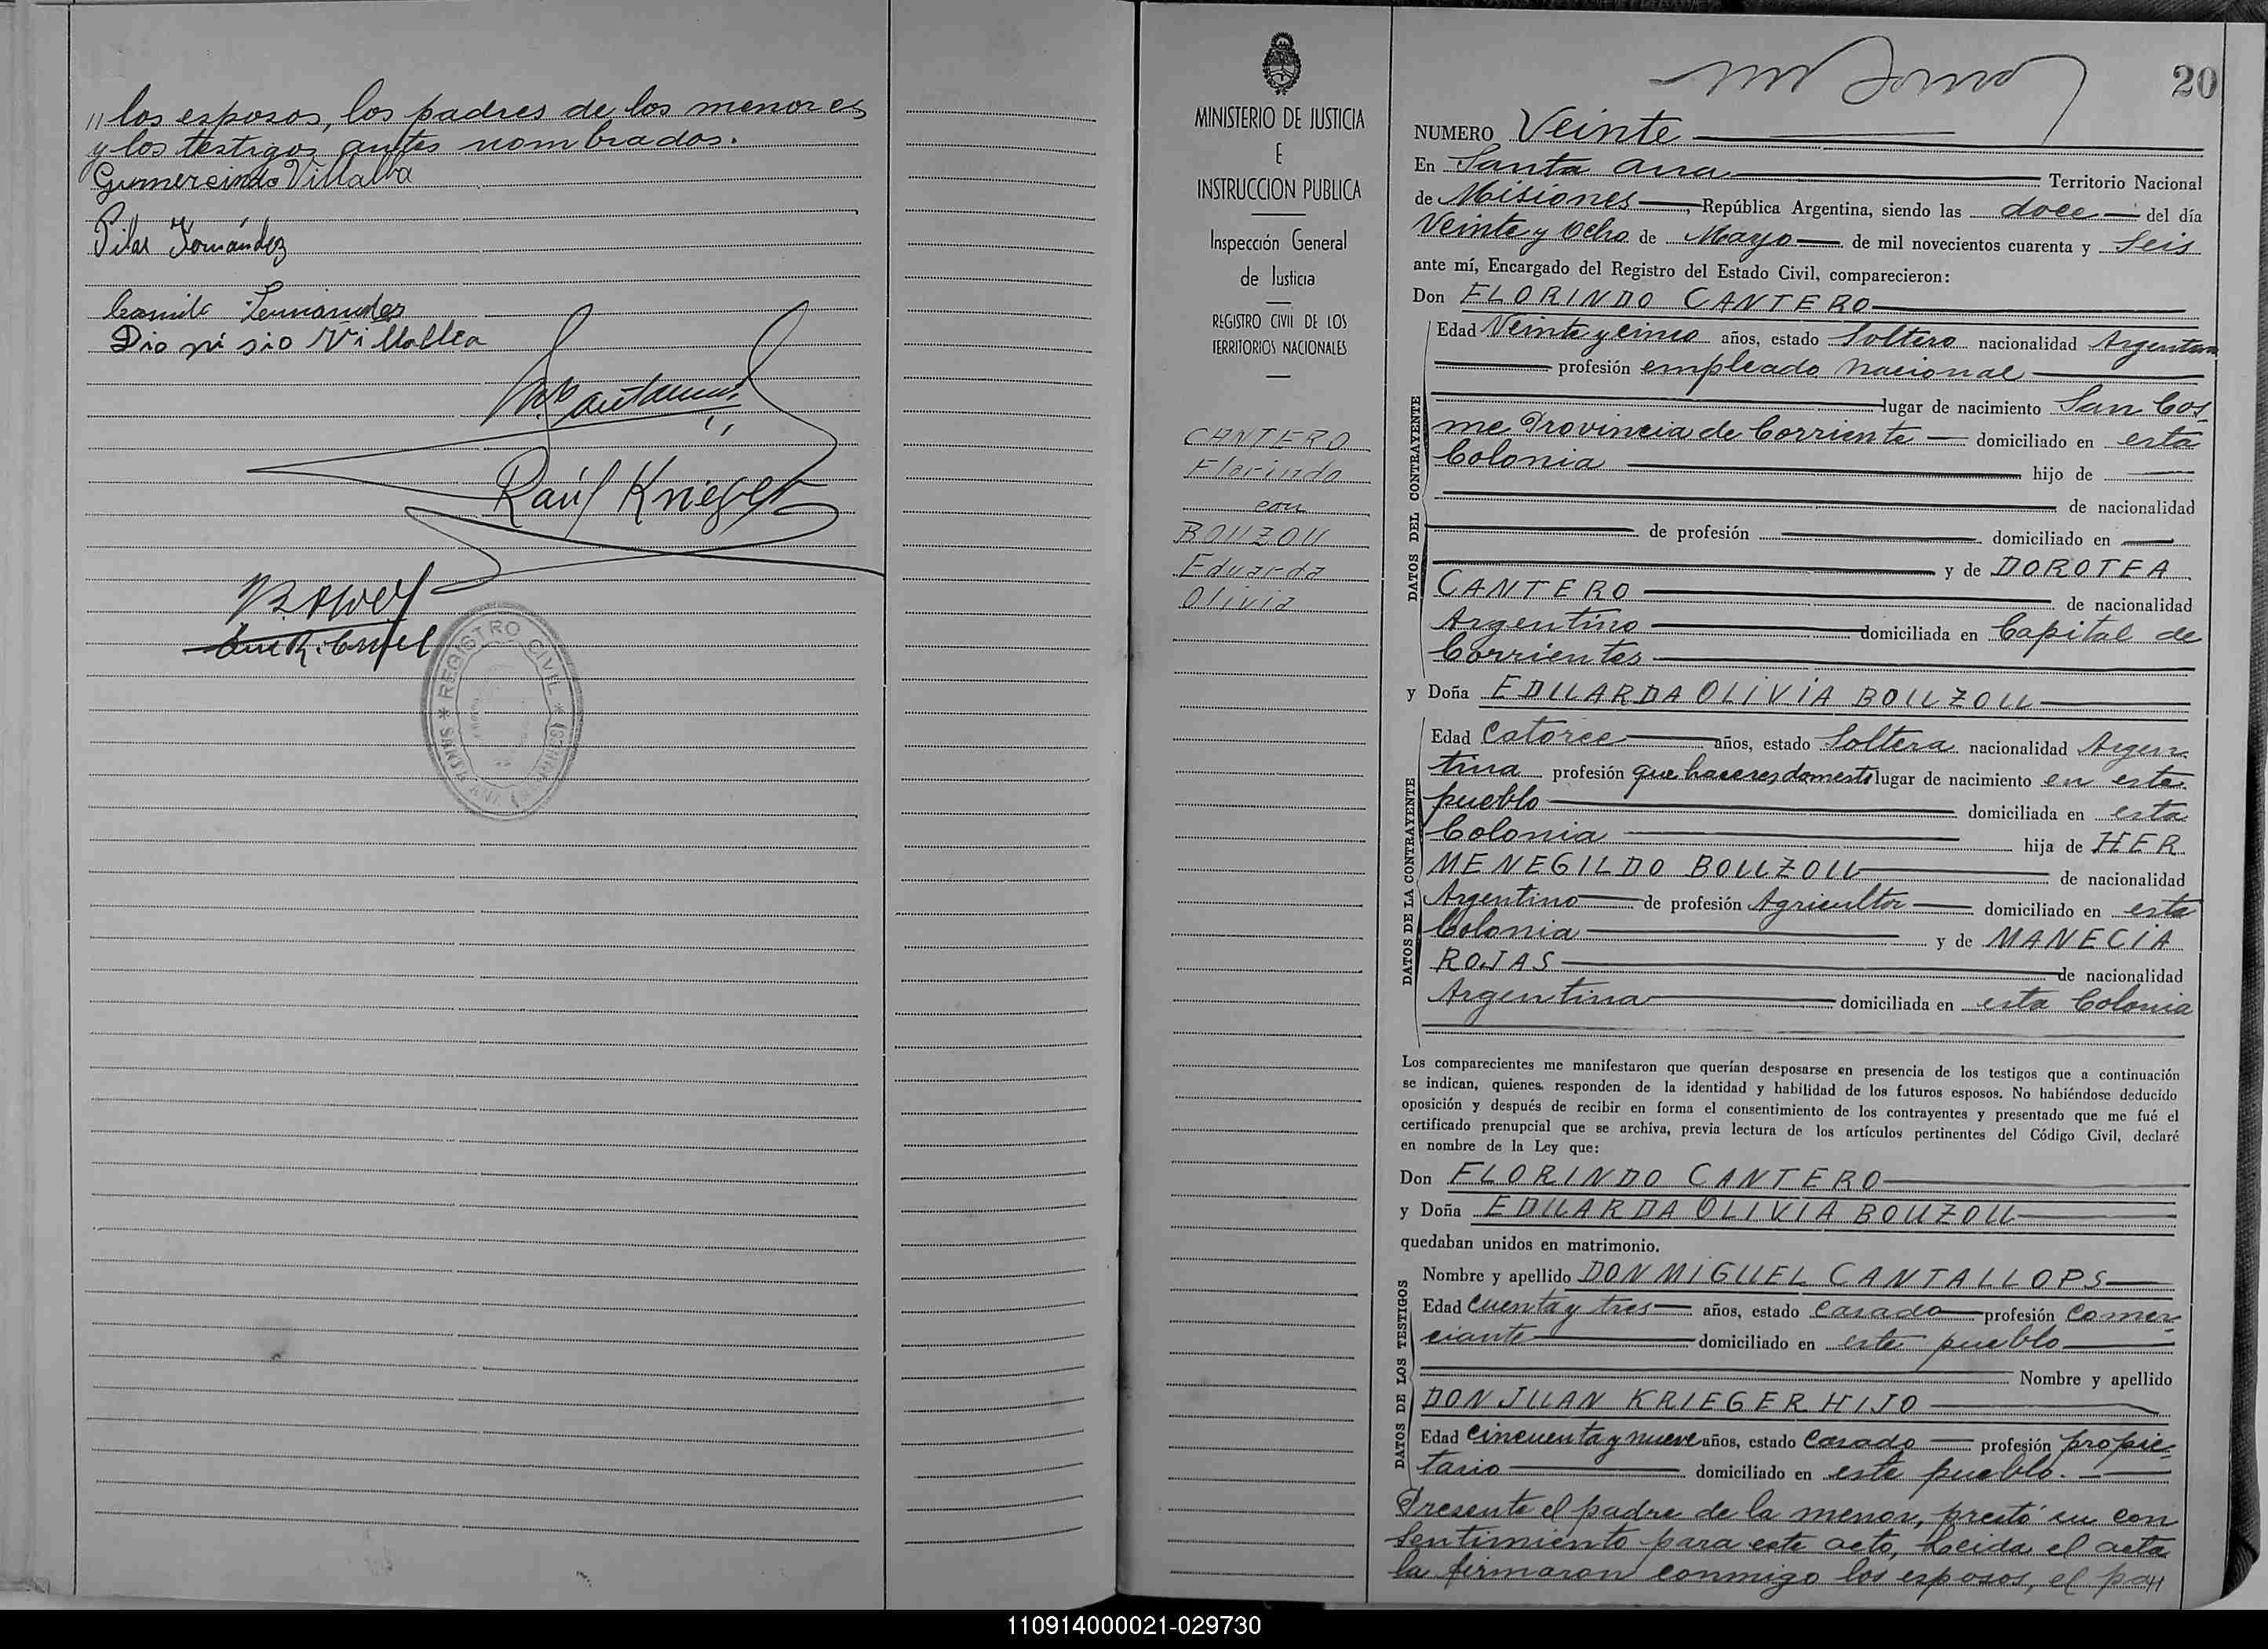 " los esposos, los padres de los menores
y los testigos antes nombrados.
Gumersindo Villalba
Pilar Fernández
Camilo Fernandez
Dionisio Villalba
Raúl Krieger
REGISTRO CIVIL
SANTA ANA (MISIONES)
MINISTERIO DE JUSTICIA
E
INSTRUCCION PUBLICA
Inspección General
de Justicia
REGISTRO CIVIL DE LOS
TERRITORIOS NACIONALES
CANTERO
Florindo
con
BOUZOU
Eduarda
Olivia
20
NUMERO Veinte
En Santa Ana Territorio Nacional
de Misiones, República Argentina, siendo las doce del día
Veinte y Ocho de Mayo de mil novecientos cuarenta y Seis
ante mí, Encargado del Registro del Estado Civil, comparecieron:
Don FLORINDO CANTERO
DATOS DEL CONTRAYENTE
Edad Veinte y cinco años, estado Soltero nacionalidad Argentina
profesión empleado nacional
lugar de nacimiento San Cos-
me Provincia de Corriente domiciliado en esta
Colonia hijo de
de nacionalidad
de profesión domiciliado en
y de DOROTEA
CANTERO de nacionalidad
Argentino domiciliada en Capital de
Corrientes
y Doña EDUARDA OLIVIA BOUZOU
DATOS DE LA CONTRAYENTE
Edad Catorce años, estado Soltera nacionalidad Argen-
tina profesión que haceres domesti lugar de nacimiento en este
pueblo domiciliada en esta
Colonia hija de HER
MENEGILDO BOUZOU de nacionalidad
Argentino de profesión Agricultor domiciliado en esta
Colonia y de MANECIA
ROJAS de nacionalidad
Argentina domiciliada en esta Colonia
Los comparecientes me manifestaron que querían desposarse en presencia de los testigos que a continuación
se indican, quienes responden de la identidad y habilidad de los futuros esposos. No habiéndose deducido
oposición y después de recibir en forma el consentimiento de los contrayentes y presentado que me fué el
certificado prenupcial que se archiva, previa lectura de los artículos pertinentes del Código Civil, declaré
en nombre de la Ley que:
Don FLORINDO CANTERO
y Doña EDUARDA OLIVIA BOUZOU
quedaban unidos en matrimonio.
DATOS DE LOS TESTIGOS
Nombre y apellido DON MIGUEL CANTALLOPS
Edad Cuenta y tres años, estado Casado profesión Comer-
ciante domiciliado en este pueblo
Nombre y apellido
DON JUAN KRIEGER HIJO
Edad Cincuenta y nueve años, estado Casado profesión propie-
tario domiciliado en este pueblo.
Presente el padre de la menor, prestó su con
sentimiento para este acto, Leida el acta
la firmaron conmigo los esposos, el pa"
110914000021-029730